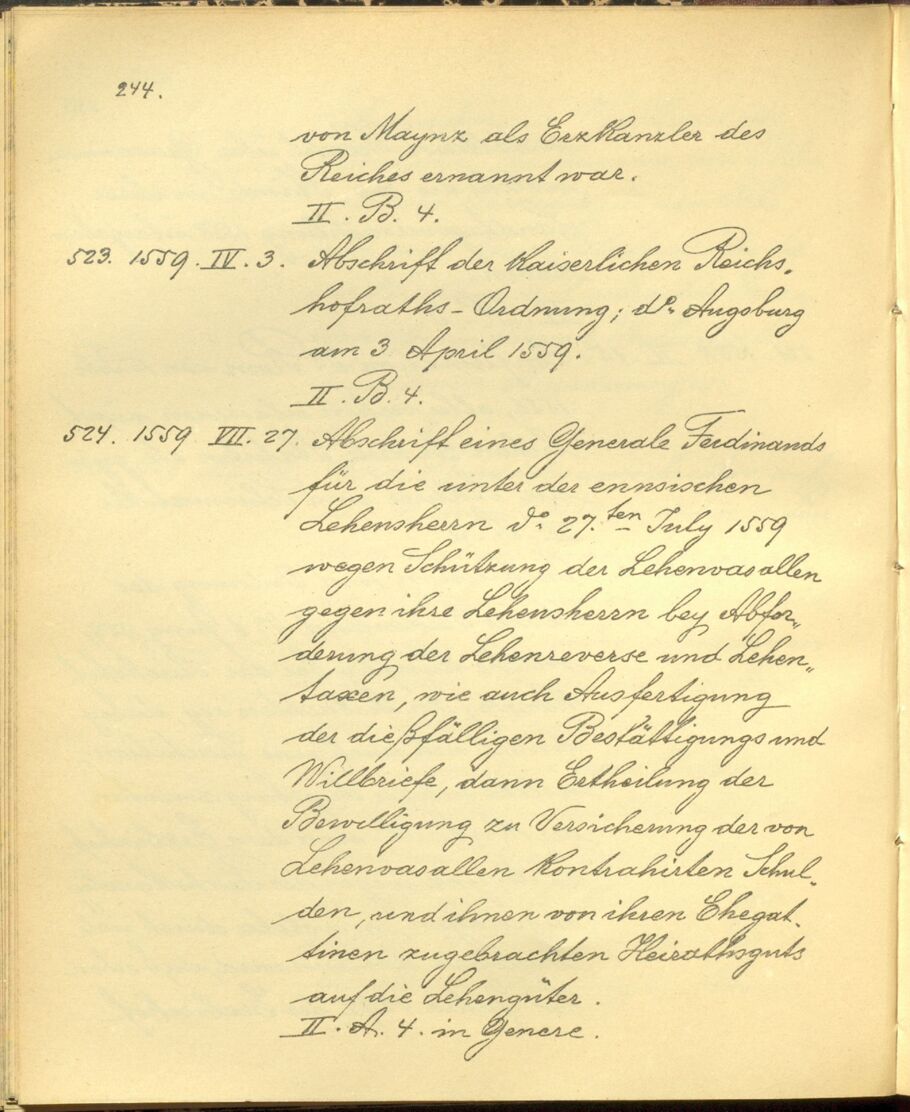 244.
von Maynz als Erzkanzler des
Reiches ernannt war.
II. B. 4.
523. 1559. IV. 3. Abschrift der kaiserlichen Reichs-
hofraths-Ordnung; do. Augsburg
am 3 April 1559.
II. B. 4.
524. 1559 VII. 27. Abschrift eines Generale Ferdinands
für die unter der ennsischen
Lehensherrn do. 27.ten July 1559
wegen Schützung der Lehenvasallen
gegen ihre Lehensherrn bey Abfor„
derung der Lehenreverse und Lehen„
taxen, wie auch Ausfertigung
der dießfälligen Bestättigungs und
Willbriefe, dann Ertheilung der
Bewilligung zu Versicherung der von
Lehenvasallen kontrahirten Schul„
den, und ihnen von ihren Ehegat-
tinen zugebrachten Heirathsguts
auf die Lehengüter.
II. A. 4. in Genere.